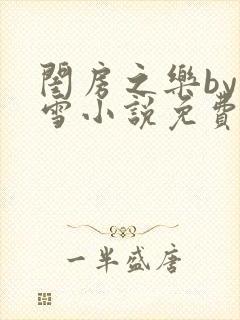 閨房之樂by
雪小說免費
一半盛唐